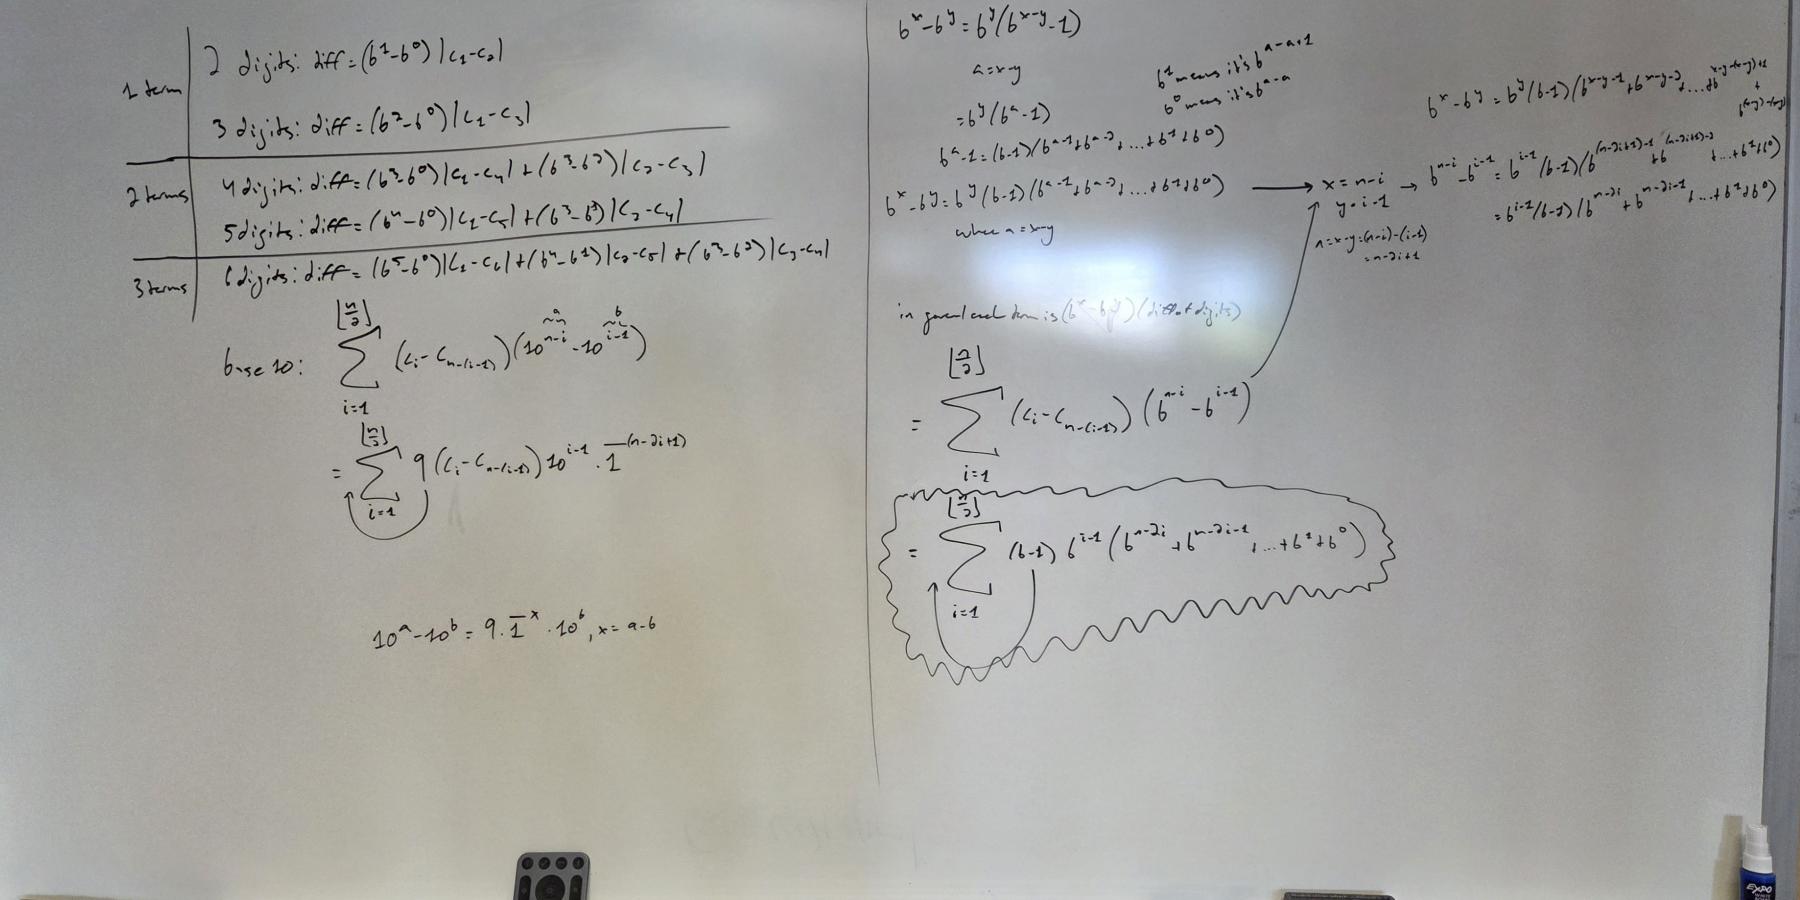 1 term
2 digits: diff = (b^1-b^0) |c_1-c_2|
3 digits: diff = (b^2-b^0) |c_1-c_3|
2 terms
4 digits: diff = (b^3-b^0) |c_1-c_4| + (b^3-b^2) |c_2-c_3|
5 digits: diff = (b^4-b^0) |c_1-c_5| + (b^3-b^1) |c_2-c_4|
3 terms
6 digits: diff = (b^5-b^0) |c_1-c_6| + (b^4-b^1) |c_2-c_5| + (b^3-b^2) |c_3-c_4|
base 10: ∑_{i=1}^{⌊n/2⌋} (c_i - c_{n-(i-1)}) (10^{n-i} - 10^{i-1})
a
b
= ∑_{i=1}^{⌊n/2⌋} 9 (c_i - c_{n-(i-1)}) 10^{i-1} · 1̅^{(n-2i+1)}
10^a - 10^b = 9 · 1̅^x · 10^b, x = a-b
b^x - b^y = b^y (b^{x-y} - 1)
a = x-y
= b^y (b^a - 1)
b^1 means it's b^{a-a+1}
b^0 means it's b^{a-a}
b^a - 1 = (b-1) (b^{a-1} + b^{a-2} + ... + b^1 + b^0)
b^x - b^y = b^y (b-1) (b^{a-1} + b^{a-2} + ... + b^1 + b^0)
where a = x-y
x = n-i
y = i-1
a = x-y = (n-i) - (i-1)
= n-2i+1
b^x - b^y = b^y (b-1) (b^{x-y-1} + b^{x-y-2} + ... + b^{x-y-(x-y)+1} + b^{(x-y)-(x-y)}
b^{n-i} - b^{i-1} = b^{i-1} (b-1) (b^{(n-2i+1)-1} + b^{(n-2i+1)-2} + ... + b^1 + b^0)
= b^{i-1} (b-1) (b^{n-2i} + b^{n-2i-1} + ... + b^1 + b^0)
in general each term is (b^x - b^y) (diff of digits)
= ∑_{i=1}^{⌊n/2⌋} (c_i - c_{n-(i-1)}) (b^{n-i} - b^{i-1})
= ∑_{i=1}^{⌊n/2⌋} (b-1) b^{i-1} (b^{n-2i} + b^{n-2i-1} + ... + b^1 + b^0)
EXPO